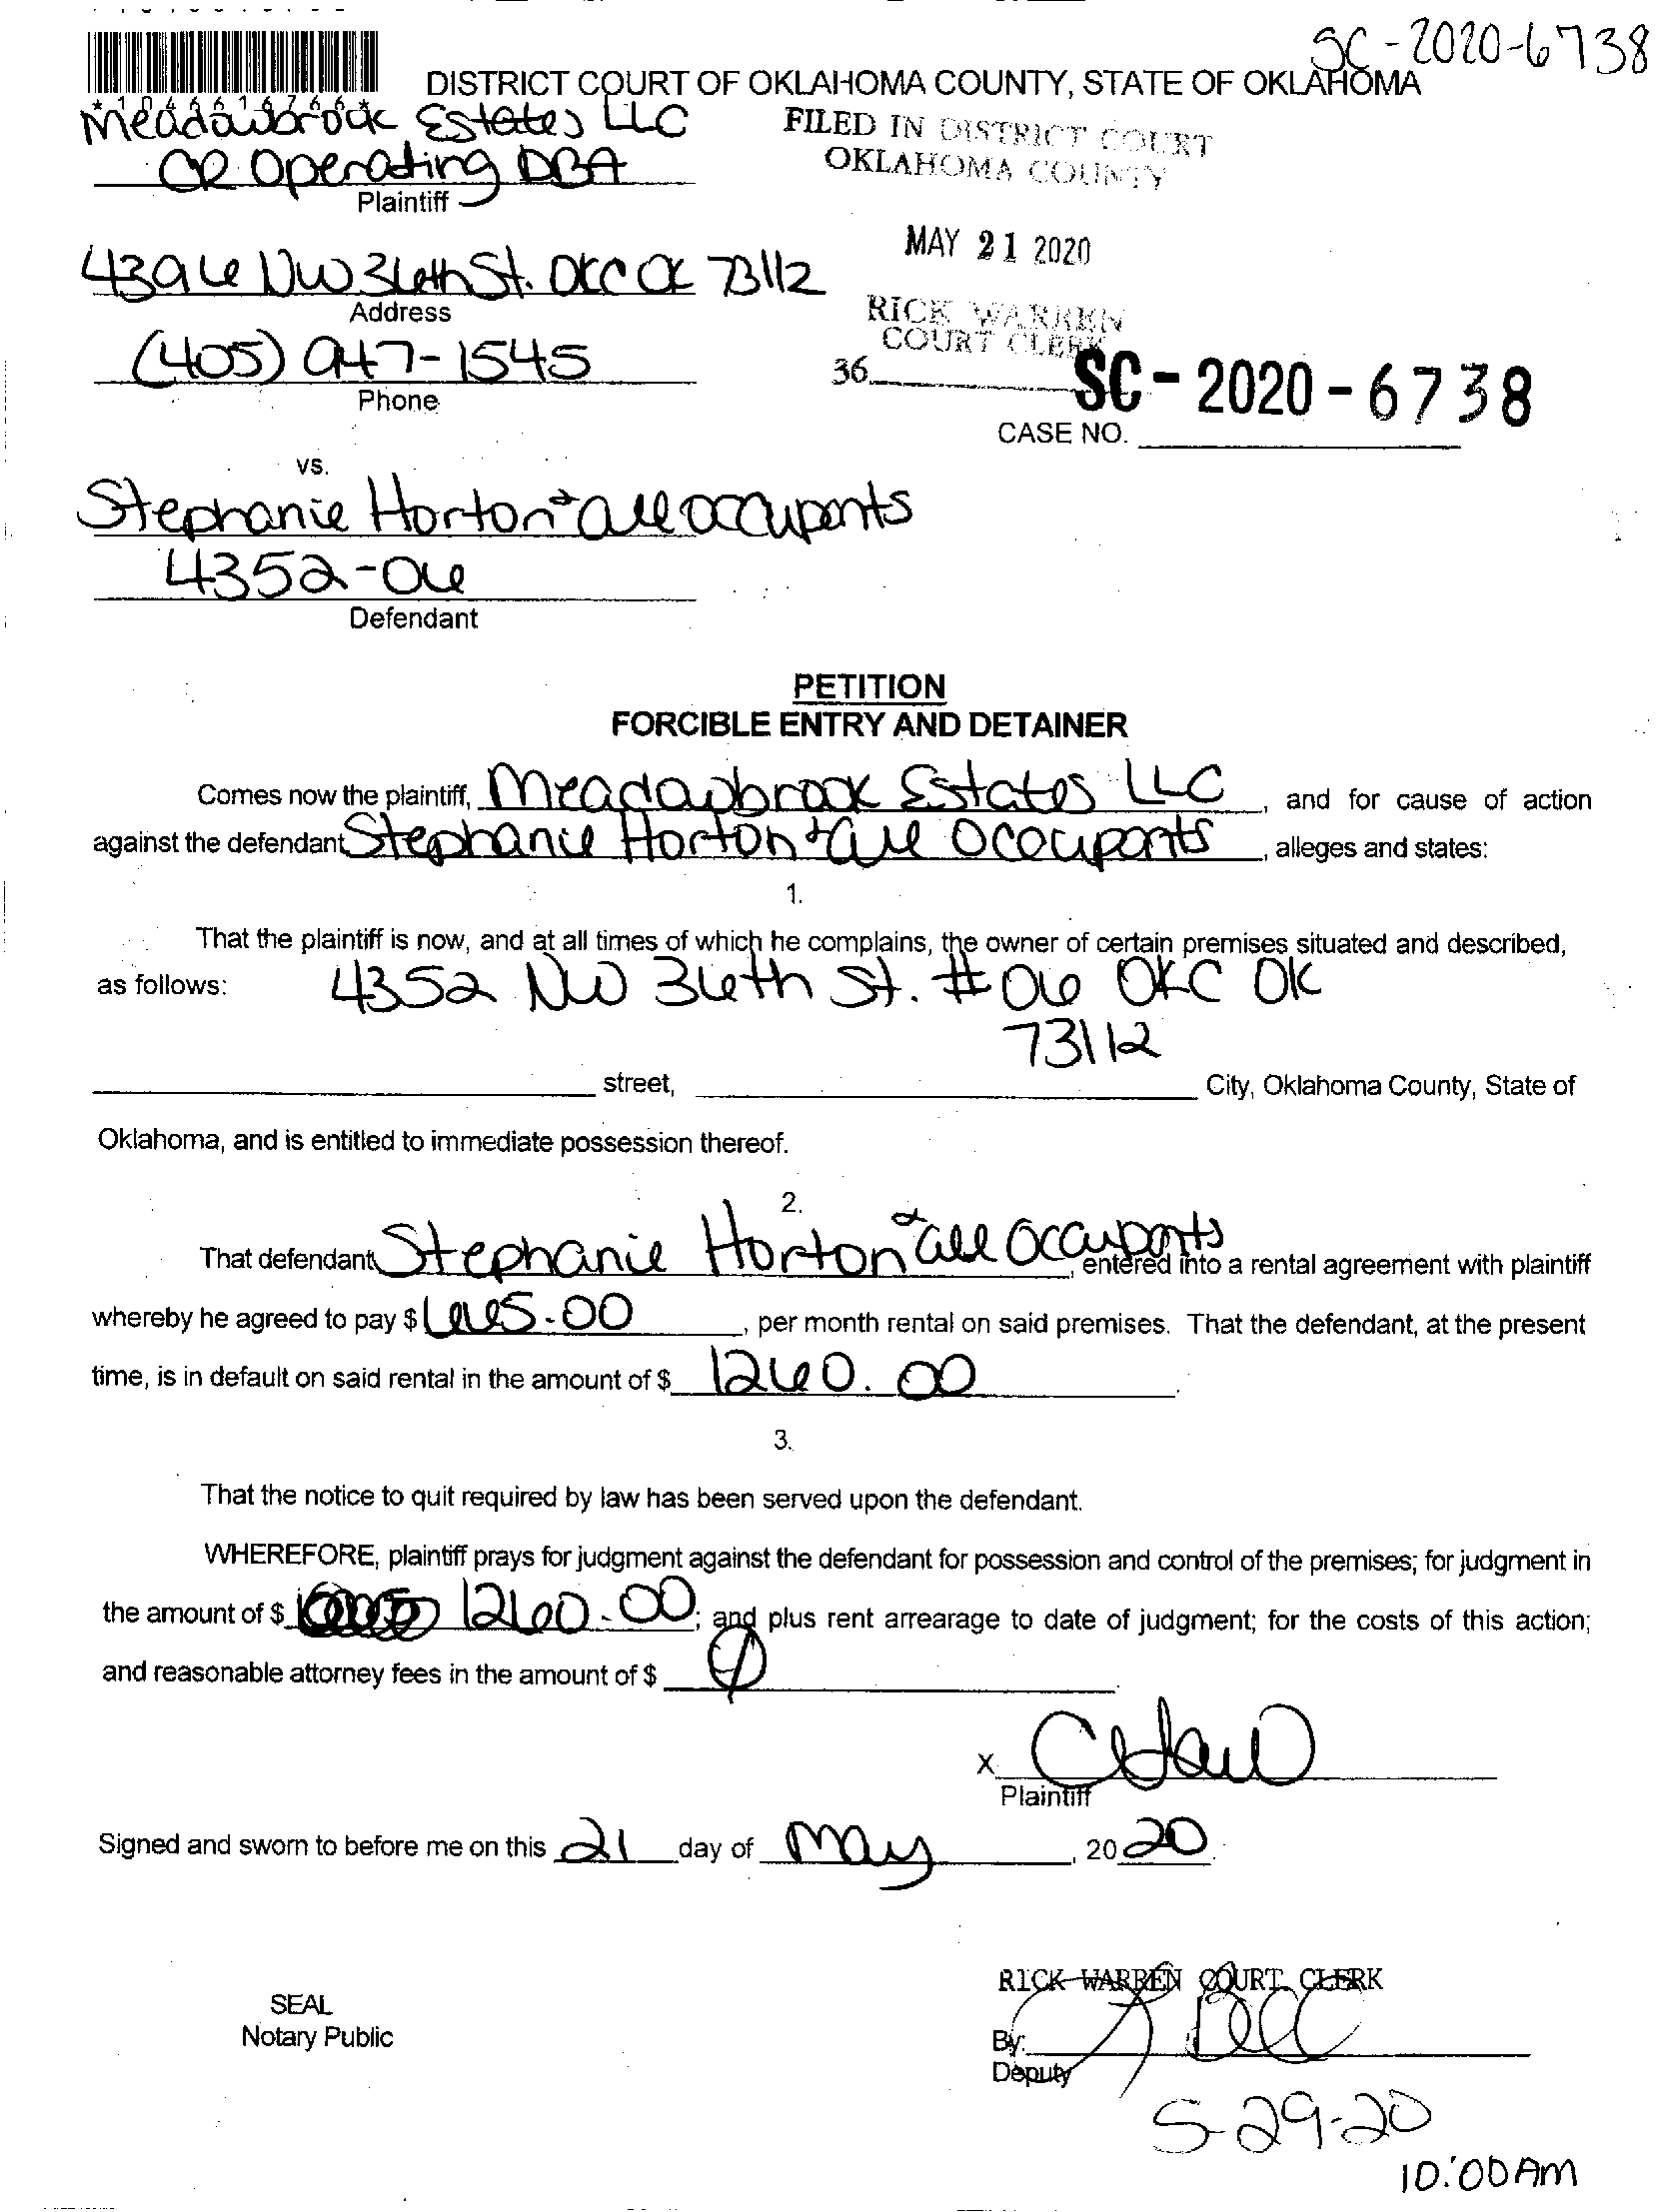 SC-2020-6738
*1046616766*
DISTRICT COURT OF OKLAHOMA COUNTY, STATE OF OKLAHOMA
Meadowbrook Estates LLC
FILED IN DISTRICT COURT
OKLAHOMA COUNTY
CR Operating DBA
Plaintiff
MAY 21 2020
4396 NW 36th St. OKC OK 73112
Address
RICK WARREN
COURT CLERK
(405) 947-1545
36
SC-2020-6738
Phone
CASE NO.
vs.
Stephanie Horton & all occupants
4352-06
Defendant
PETITION
FORCIBLE ENTRY AND DETAINER
Comes now the plaintiff, Meadowbrook Estates LLC, and for cause of action
against the defendant Stephanie Horton & all Occupants, alleges and states:
1.
That the plaintiff is now, and at all times of which he complains, the owner of certain premises situated and described,
as follows: 4352 NW 36th St. #06 OKC OK
73112
street, City, Oklahoma County, State of
Oklahoma, and is entitled to immediate possession thereof.
2.
That defendant Stephanie Horton & all Occupants, entered into a rental agreement with plaintiff
whereby he agreed to pay $ 665.00, per month rental on said premises. That the defendant, at the present
time, is in default on said rental in the amount of $ 1260.00.
3.
That the notice to quit required by law has been served upon the defendant.
WHEREFORE, plaintiff prays for judgment against the defendant for possession and control of the premises; for judgment in
the amount of $ 1260.00; and plus rent arrearage to date of judgment; for the costs of this action;
and reasonable attorney fees in the amount of $ Ø.
X
Plaintiff
Signed and sworn to before me on this 21 day of May, 2020.
RICK WARREN COURT CLERK
SEAL
Notary Public
By:
Deputy
5-29-20
10:00AM